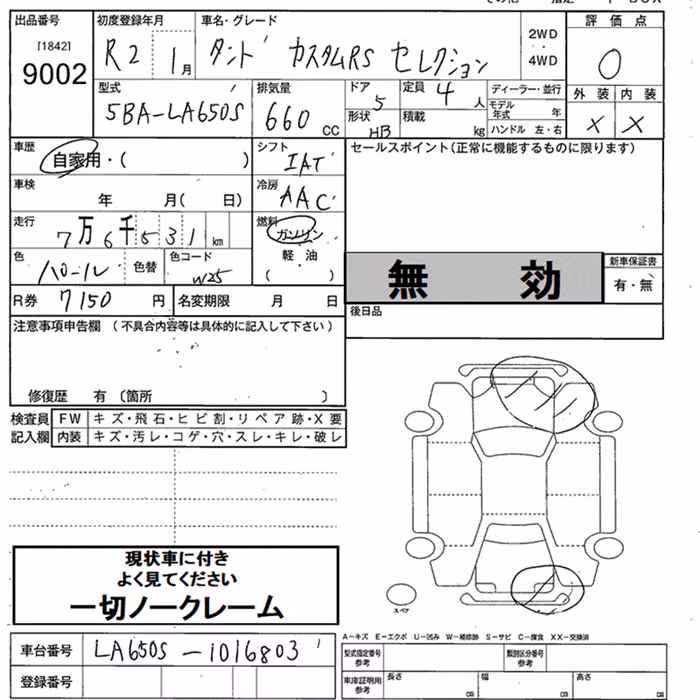 出品番号
[1842]
9002
初度登録年月
R2 1月
車名・グレード
タント カスタムRS セレクション
2WD
4WD
評価点
0
型式
5BA-LA650S
排気量
660 CC
ドア
5
定員
4人
形状
HB
積載
kg
ディーラー・並行
モデル年式 年
ハンドル 左・右
外装 内装
X X
車歴
自家用・( )
シフト
IAT
セールスポイント(正常に機能するものに限ります)
車検
年 月(日)
冷房
AAC
走行
7万6千531km
燃料
ガソリン
軽油
( )
色
パール
色替
色コード
W25
無 効
新車保証書
有・無
R券 7150 円
名変期限 月 日
後日品
注意事項申告欄 (不具合内容等は具体的に記入して下さい)
修復歴 有 (箇所 )
検査員
記入欄
FW キズ・飛石・ヒビ割・リペア跡・X要
内装 キズ・汚レ・コゲ・穴・スレ・キレ・破レ
現状車に付き
よく見てください
一切ノークレーム
スペア
A-キズ E-エクボ U-凹み W-補修跡 S-サビ C-腐食 XX-交換済
車台番号 LA650S-1016803
登録番号
型式指定番号
参考
類別区分番号
参考
車庫証明用
参考
長さ cm
幅 cm
高さ cm